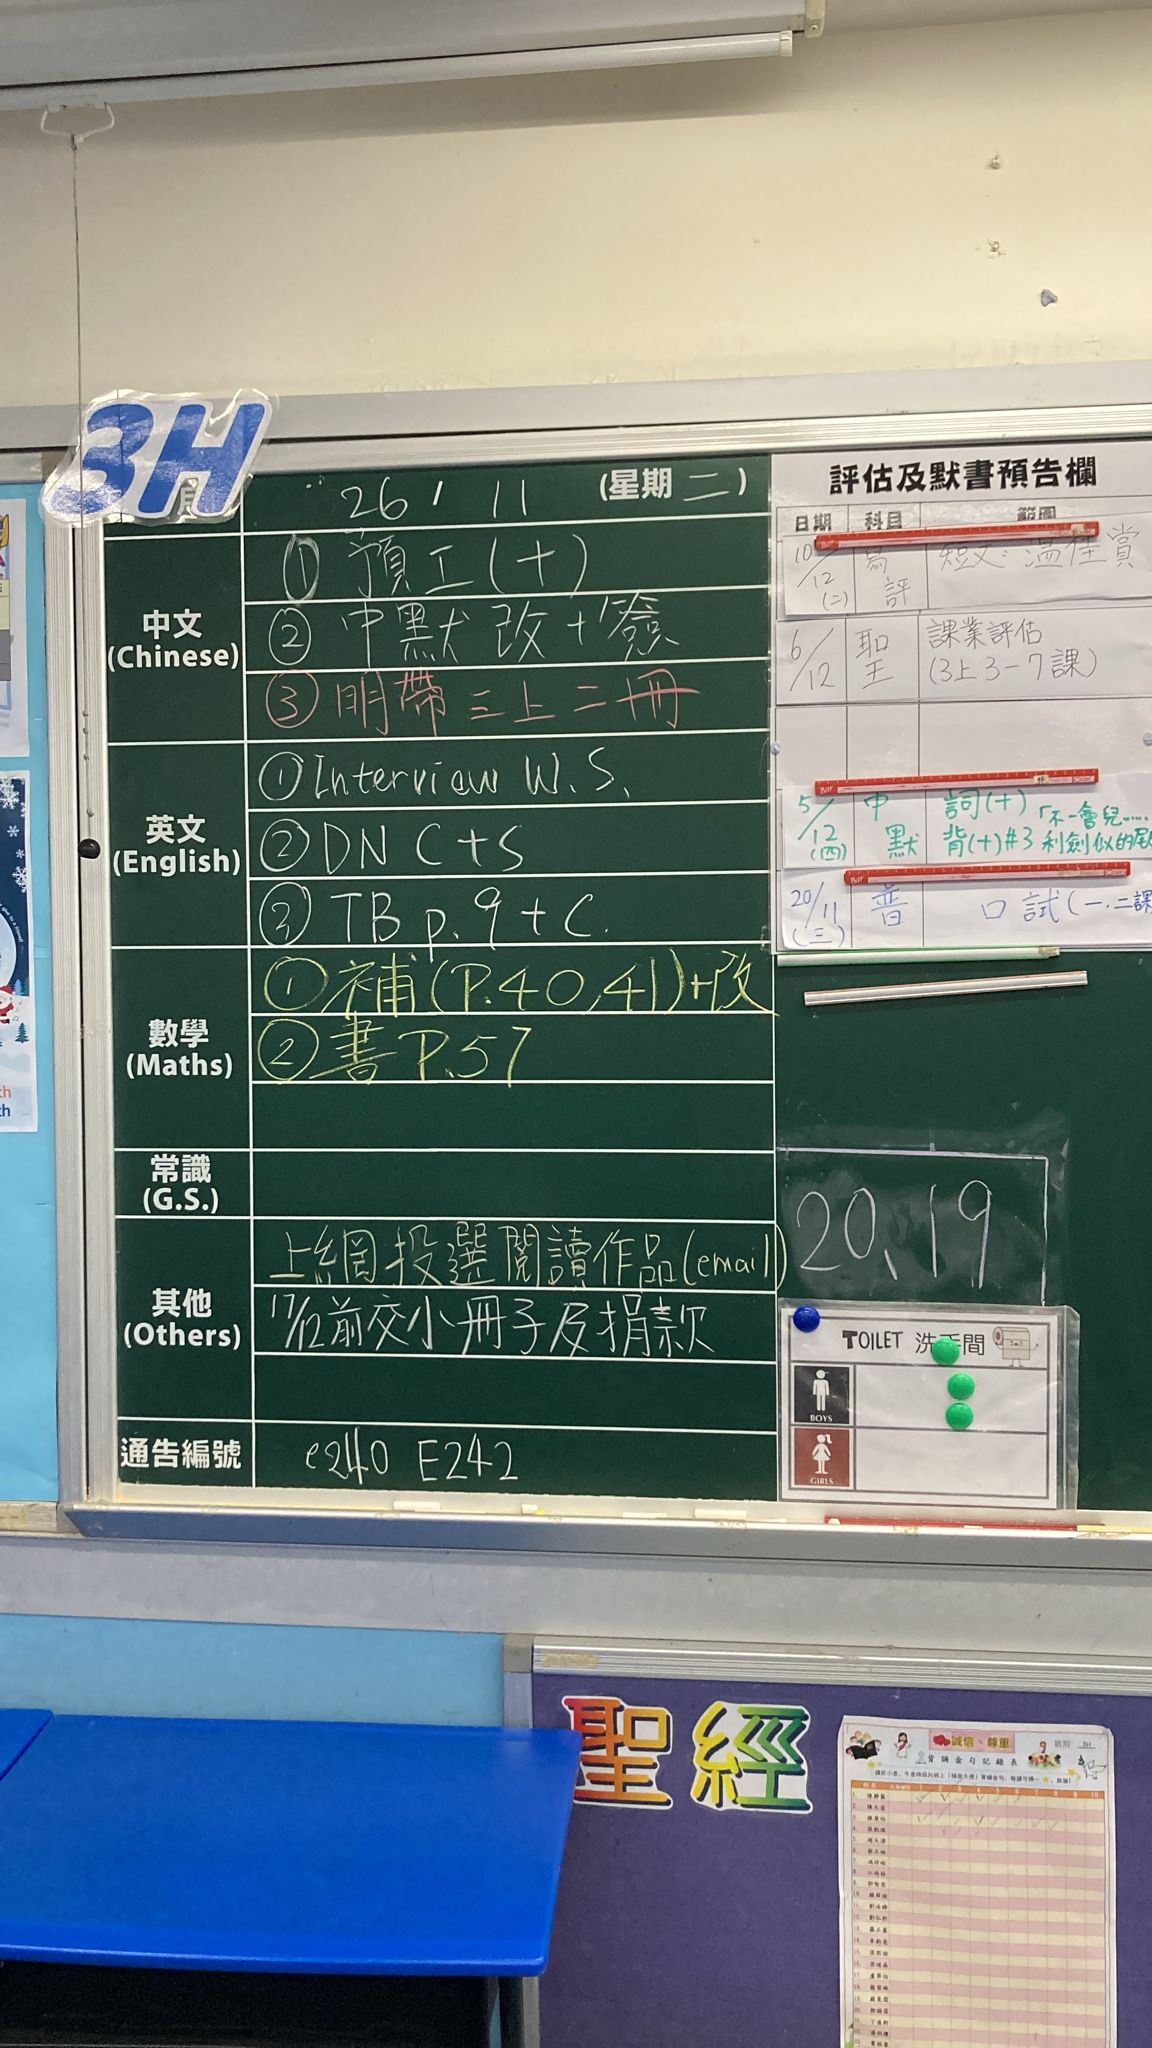 3H
26 / 11 (星期 二)
中文
(Chinese)
① 預工(十)
② 中默 改+簽
③ 明帶三上二冊
英文
(English)
① Interview W.S.
② DN C+S
③ TB p.9 + C.
數學
(Maths)
① 補(P.40,41)+改
② 書 P.57
常識
(G.S.)
其他
(Others)
上網投選閱讀作品(email)
17/12前交小冊子及捐款
通告編號
e240 E242
評估及默書預告欄
日期 科目 範圍
10/12(二) 寫評 短文: 溫佳賞
6/12 聖 課業評估
(3上3-7課)
5/12(四) 中默 詞(十)「不一會兒……
背(十)#3 利劍似的尾
20/11(三) 普 口試(一.二課
20.19
TOILET 洗手間
BOYS
GIRLS
聖經
誠信、尊重
背誦金句記錄表
3H